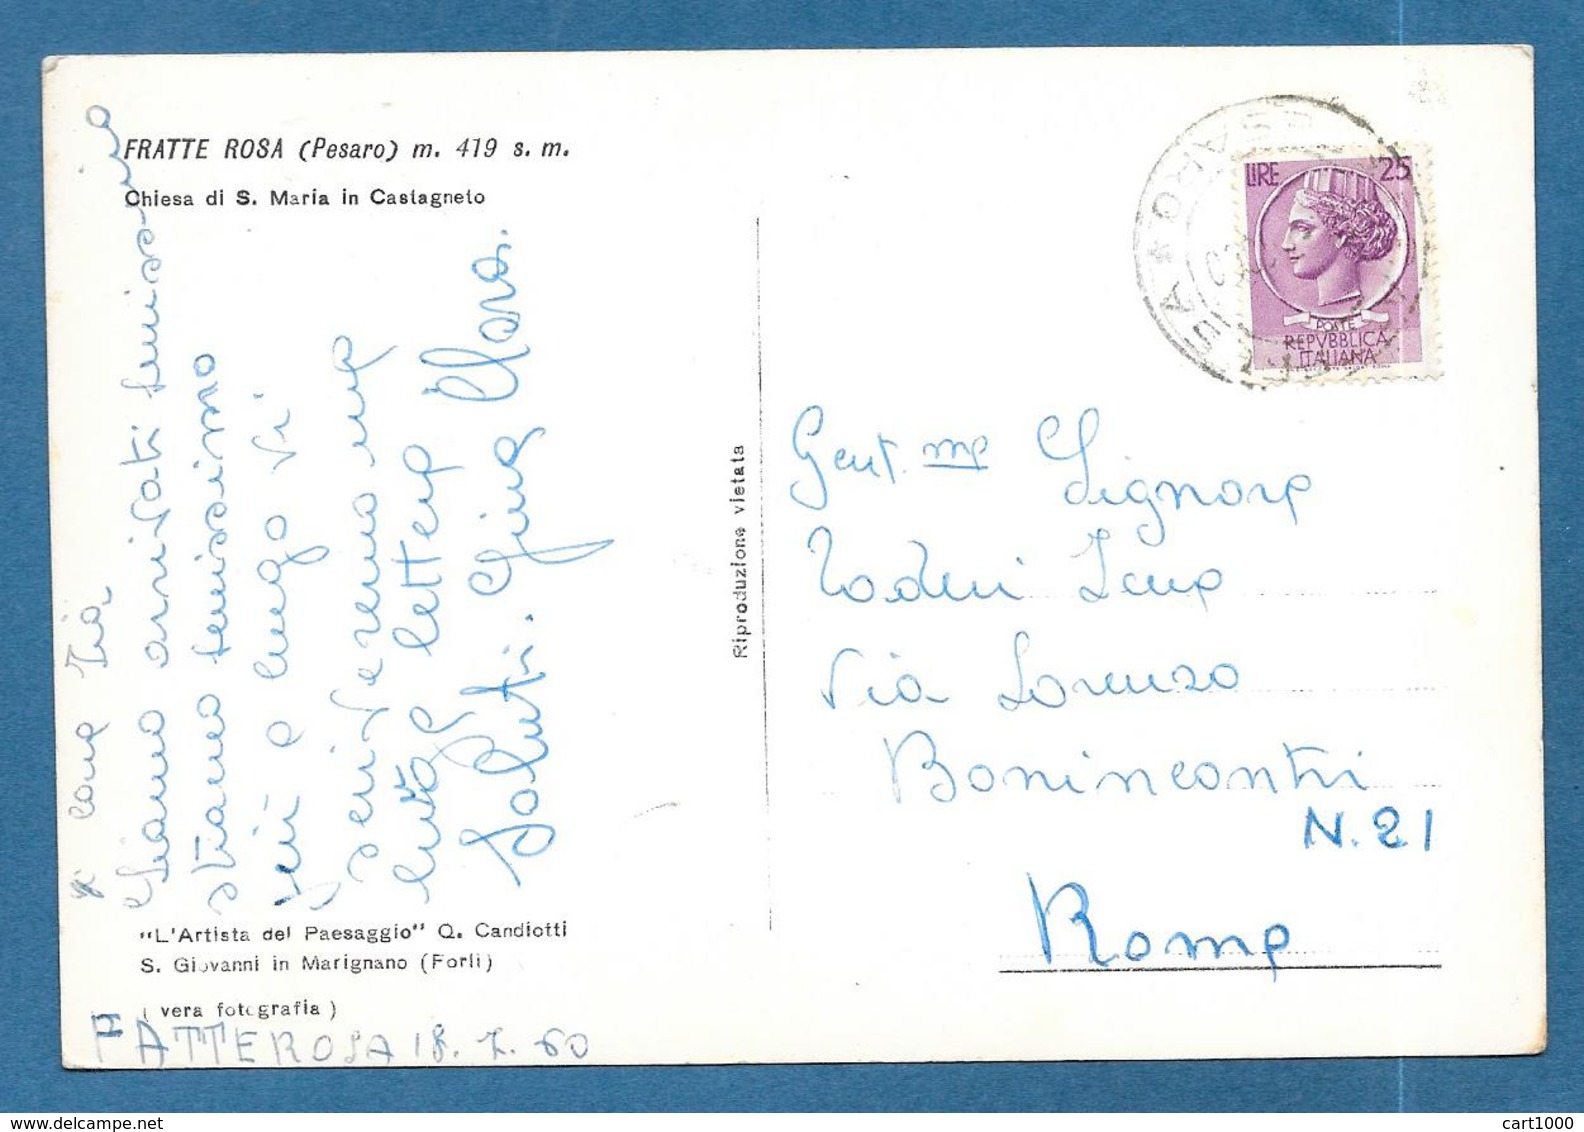 FRATTE ROSA (Pesaro) m. 419 s. m.
Chiesa di S. Maria in Castagneto
cara Zia
Siamo arrivati benissimo
stiamo benissimo
più a lungo vi
scriveremo una
lunga lettera
saluti. Gina Mara.
"L'Artista del Paesaggio" Q. Candiotti
S. Giovanni in Marignano (Forlì)
( vera fotografia )
FATTEROSA 18. 7. 60
Riproduzione vietata
LIRE 25
POSTE
REPVBBLICA
ITALIANA
Gent.ma Signora
Via Lorenzo
Bonincontri
N. 21
Roma
cart1000